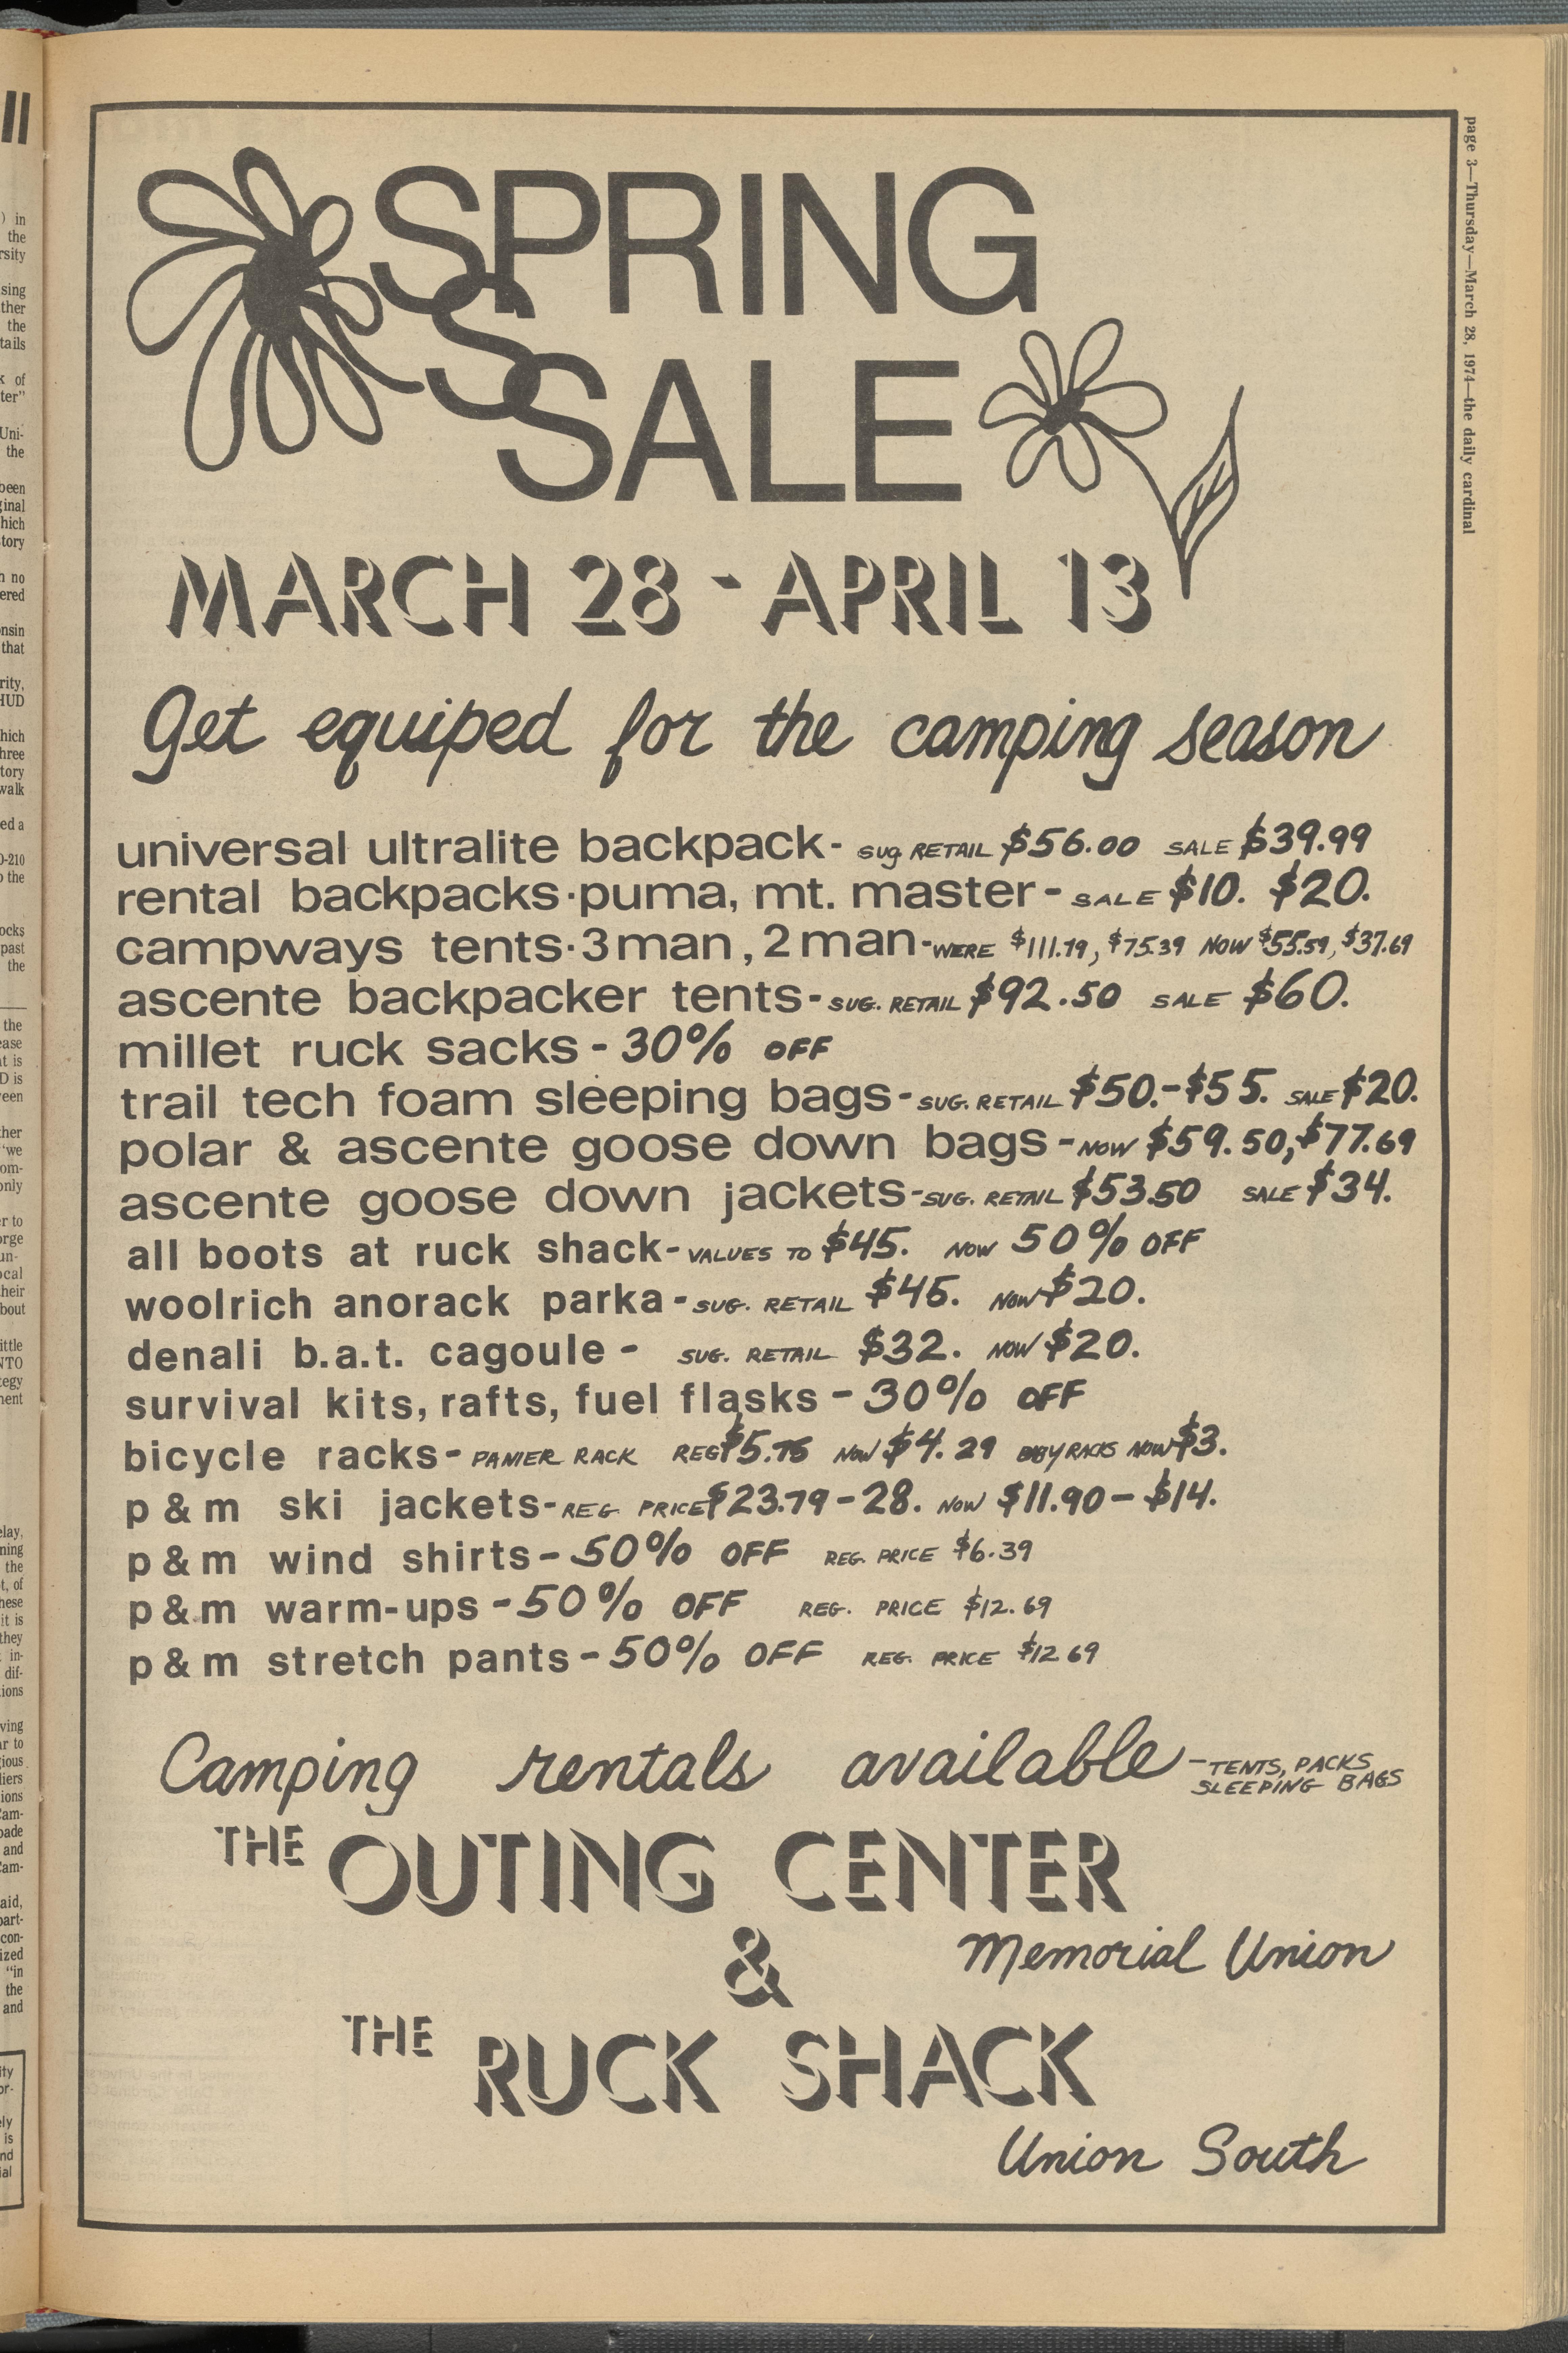 page 3—Thursday—March 28, 1974—the daily cardinal
SPRING
S
SALE
MARCH 28 - APRIL 13
Get equiped for the camping season
universal ultralite backpack- sug RETAIL $56.00 SALE $39.99
rental backpacks·puma, mt. master- SALE $10. $20.
campways tents·3man, 2man- WERE $111.19, $75.39 NOW $55.59, $37.69
ascente backpacker tents- SUG. RETAIL $92.50 SALE $60.
millet ruck sacks - 30% OFF
trail tech foam sleeping bags- SUG. RETAIL $50.-$55. SALE $20.
polar & ascente goose down bags- NOW $59.50, $77.69
ascente goose down jackets- SUG. RETAIL $53.50 SALE $34.
all boots at ruck shack- VALUES TO $45. NOW 50% OFF
woolrich anorack parka- SUG. RETAIL $45. NOW $20.
denali b.a.t. cagoule - SUG. RETAIL $32. NOW $20.
survival kits, rafts, fuel flasks - 30% OFF
bicycle racks- PANIER RACK REG $5.75 NOW $4.29 RACKS NOW $3.
p & m ski jackets- REG. PRICE $23.79-28. NOW $11.90- $14.
p & m wind shirts - 50% OFF REG. PRICE $6.39
p & m warm-ups - 50% OFF REG. PRICE $12.69
p & m stretch pants - 50% OFF REG. PRICE $12.69
Camping rentals available - TENTS, PACKS
SLEEPING BAGS
THE OUTING CENTER
&
Memorial Union
THE RUCK SHACK
Union South